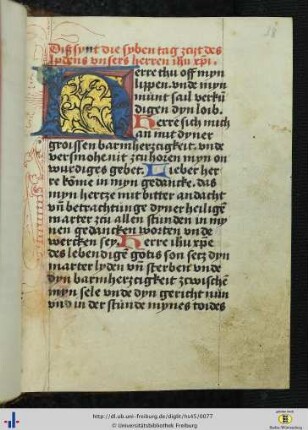 Diß synt die syben tag zyt des
lydens vnsers herren ihu xpi.
Herre thu off myn
lippen. vnde myn
munt sail verkū
digen dyn loib.
Herre sich mich
an mit dyner
groissen barmhertzigkeit. vnde
versmohe nit zu horen myn on
wurdiges gebet. Lieber her
re kome in myn gedancke. das
myn hertze mit bitter andacht
vn̄ betrachtunge dyner heiligē
marter zcu allen stunden in my
nen gedancken worten vnde
wercken sey. Herre ihu xp̄e
des lebendigē gotis son setz dyn
marter lyden vn̄ sterben vnde
dyn barmhertzigkeit zwischē
myn sele vnde dyn gericht nūn
vnd in der stūnde mynes toides
http://dl.ub.uni-freiburg.de/diglit/hs45/0077
© Universitätsbibliothek Freiburg
Baden-Württemberg